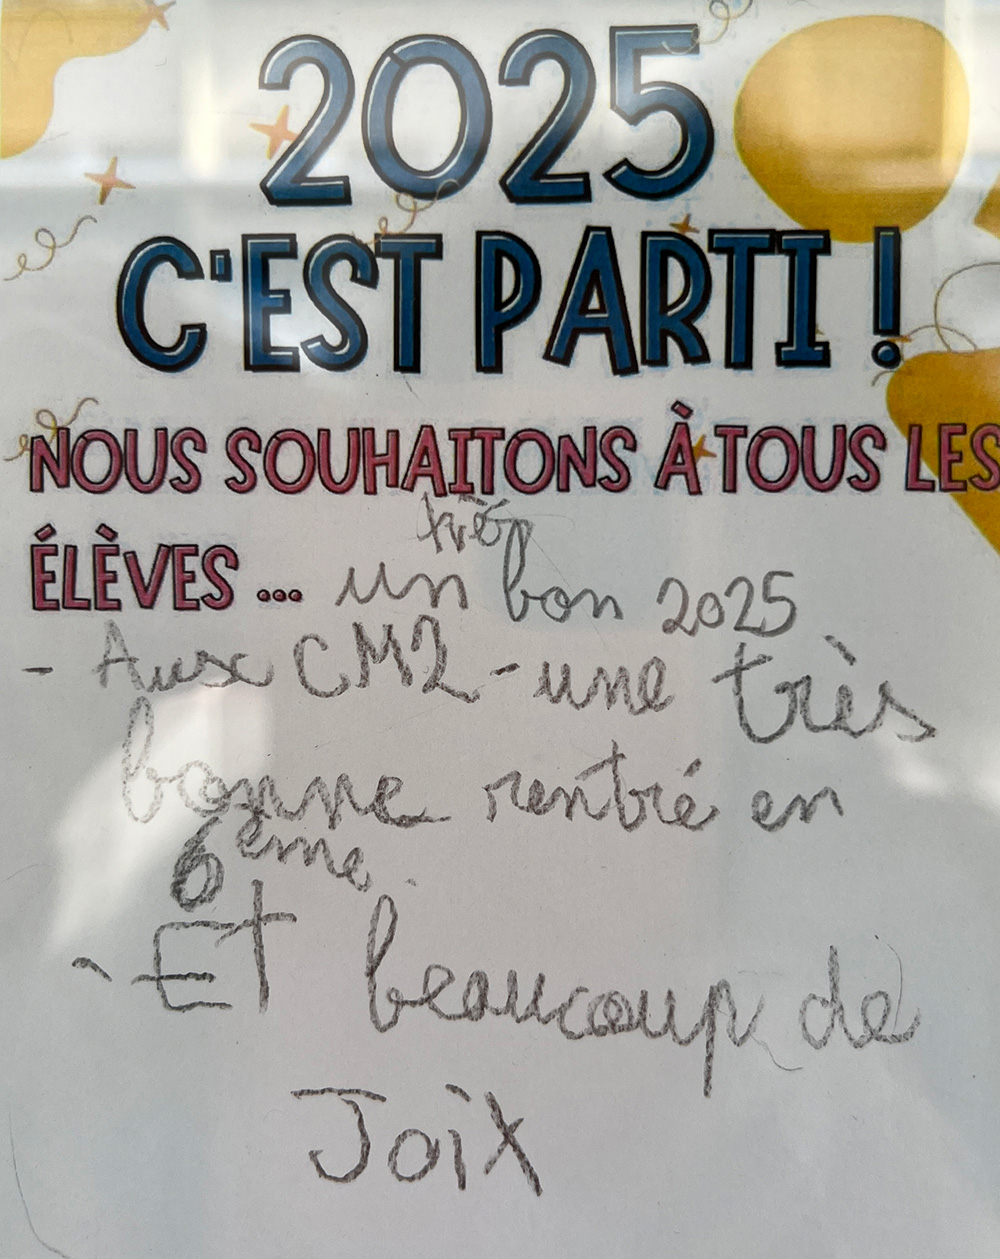 2025
C'EST PARTI !
NOUS SOUHAITONS À TOUS LES
ÉLÈVES ... un très bon 2025
- Aux CM2 - une très
bonne rentré en
6ème.
- Et beaucoup de
Joix